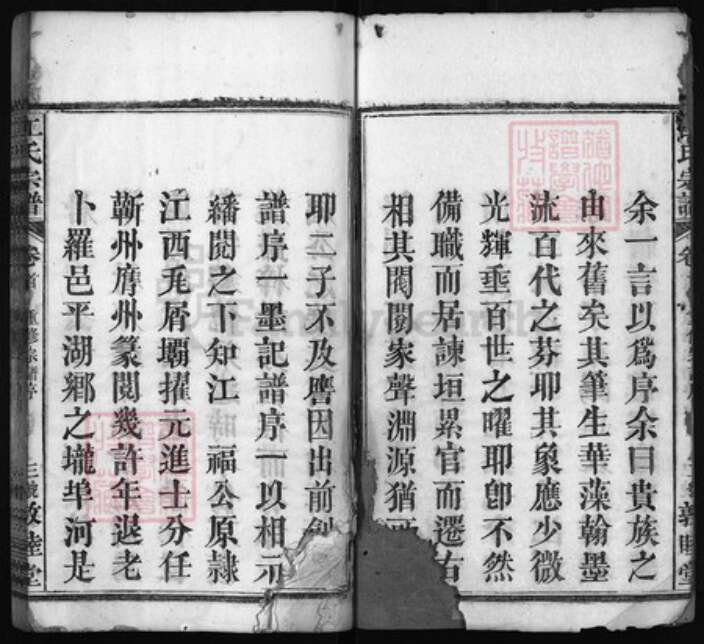 余一言以爲序余曰貴族之
由來舊矣其筆生華藻翰墨
流百代之芬耶其象應少微
光輝垂百世之曜耶卽不然
備職而居諫垣累官而遷右
相其閥閱家聲淵源猶可
耶二子不及譍因出前
譜序一墨記譜序一以相示
繙閱之下知江 福公原隷
江西瓦屑壩擢元進士分任
蘄州 州篆閱幾許年退老
卜羅邑平湖鄉之壠埠河是
江氏宗譜 卷首 重修宗譜序 三號 敦睦堂
氏宗譜 卷 敦睦堂
FamilySearch